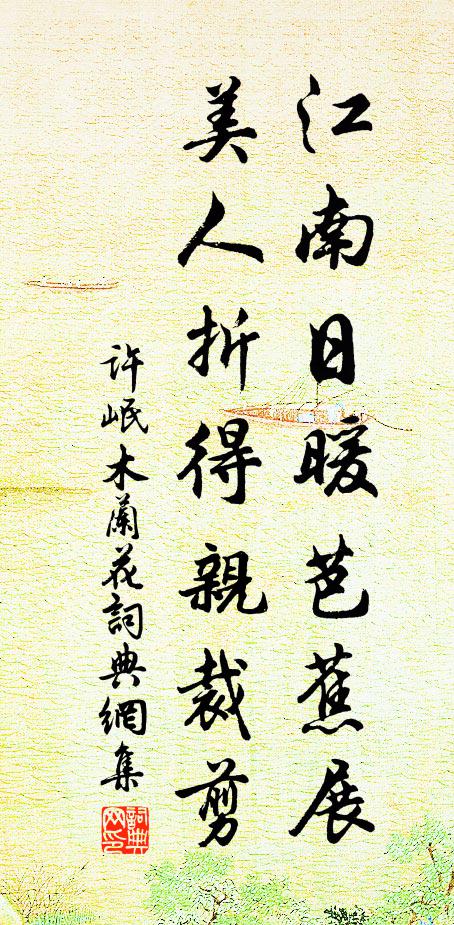 江南日暖芭蕉展
美人折得親裁剪
許岷木蘭花詞典網集
詞典網印